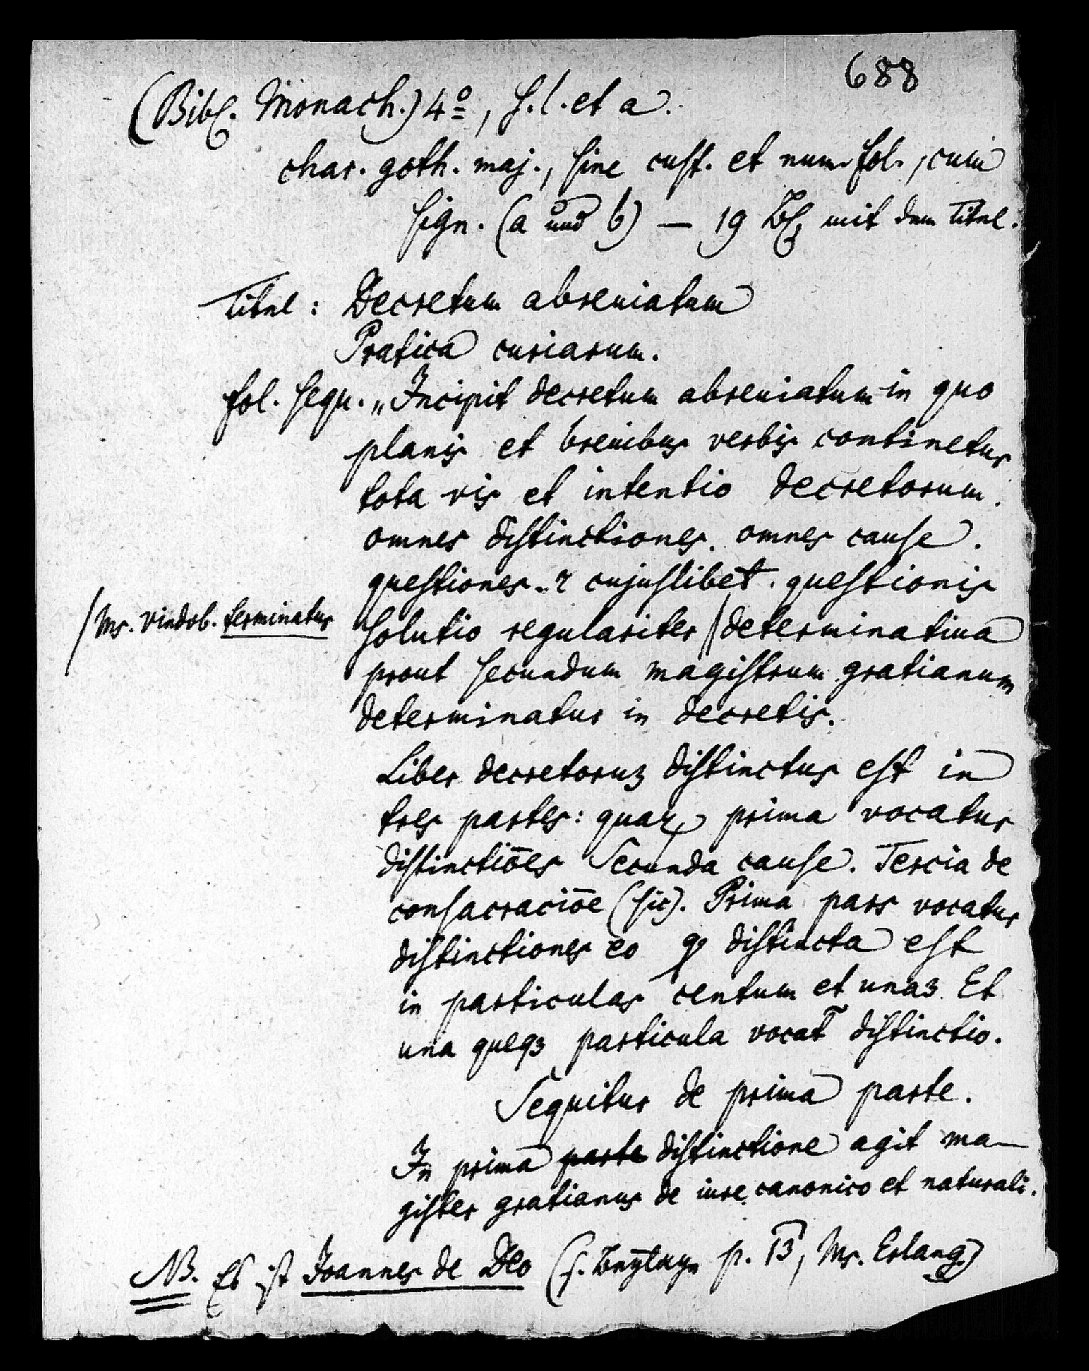 688
(Bibl. Monach.) 4º, s. l. et a.
char. goth. maj., sine cust. et num. fol., cum
sign. (a und b) — 19 Bl. mit dem Titel.
Titel: Decretum abreuiatum
Pratica curiarum.
fol. sequ. „Incipit decretum abreuiatum in quo
planis et breuibus verbis continetur
tota vis et intentio decretorum.
omnes distinctiones. omnes cause.
questiones. ⁊ cujuslibet. questionis
/ Ms. vindob. terminatur
solutio regulariter / determinatiua
prout secundum magistrum gratianum
determinatur in decretis.
Liber decretoruꝫ distinctus est in
tres partes: quaꝝ prima vocatur
distinctiōes Secunda cause. Tercia de
consacraciōe (sic). Prima pars vocatur
distinctiones eo ꝙ distincta est
in particulas centum et unaꝫ. Et
una queqꝫ particula vocat̄ distinctio.
Sequitur de prima parte.
In prima parte distinctione agit ma-
gister gratianus de iure canonico et naturali.
NB. Es ist Joannes de Deo (s. p. 13, Ms. Erlang.)